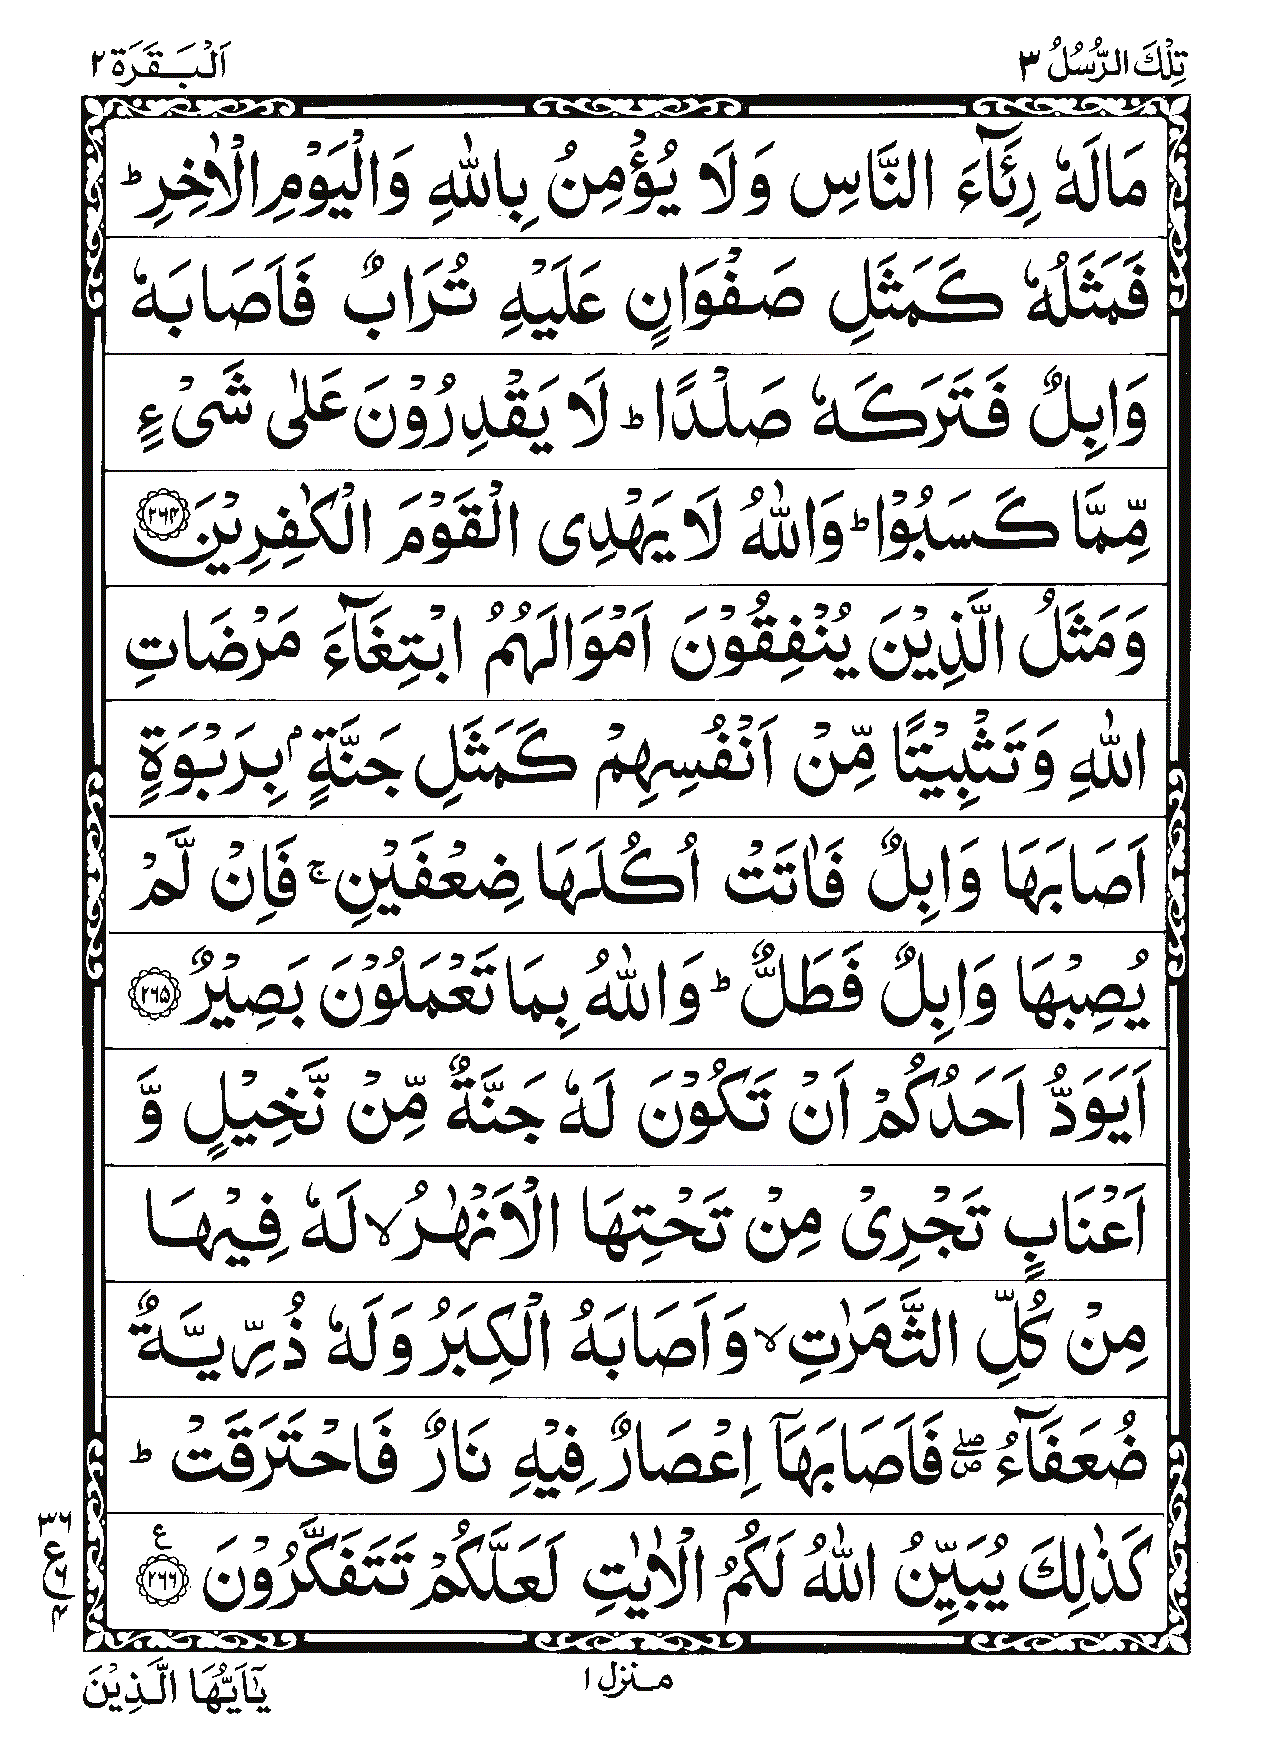 تِلْكَ الرُّسُلُ ٣
اَلْبَقَرَة ٢
مَالَهٗ رِئَآءَ النَّاسِ وَلَا يُؤْمِنُ بِاللّٰهِ وَالْيَوْمِ الْاٰخِرِ ؕ
فَمَثَلُهٗ كَمَثَلِ صَفْوَانٍ عَلَيْهِ تُرَابٌ فَاَصَابَهٗ
وَابِلٌ فَتَرَكَهٗ صَلْدًا ؕ لَا يَقْدِرُوْنَ عَلٰى شَیْءٍ
مِّمَّا كَسَبُوْا ؕ وَاللّٰهُ لَا يَهْدِی الْقَوْمَ الْكٰفِرِيْنَ ۝۲۶۴
وَمَثَلُ الَّذِيْنَ يُنْفِقُوْنَ اَمْوَالَهُمُ ابْتِغَآءَ مَرْضَاتِ
اللّٰهِ وَتَثْبِيْتًا مِّنْ اَنْفُسِهِمْ كَمَثَلِ جَنَّةٍۭ بِرَبْوَةٍ
اَصَابَهَا وَابِلٌ فَاٰتَتْ اُكُلَهَا ضِعْفَيْنِ ۚ فَاِنْ لَّمْ
يُصِبْهَا وَابِلٌ فَطَلٌّ ؕ وَاللّٰهُ بِمَا تَعْمَلُوْنَ بَصِيْرٌ ۝۲۶۵
اَيَوَدُّ اَحَدُكُمْ اَنْ تَكُوْنَ لَهٗ جَنَّةٌ مِّنْ نَّخِيْلٍ وَّ
اَعْنَابٍ تَجْرِیْ مِنْ تَحْتِهَا الْاَنْهٰرُ ۙ لَهٗ فِيْهَا
مِنْ كُلِّ الثَّمَرٰتِ ۙ وَاَصَابَهُ الْكِبَرُ وَلَهٗ ذُرِّيَّةٌ
ضُعَفَآءُ ۖ فَاَصَابَهَآ اِعْصَارٌ فِيْهِ نَارٌ فَاحْتَرَقَتْ ؕ
كَذٰلِكَ يُبَيِّنُ اللّٰهُ لَكُمُ الْاٰيٰتِ لَعَلَّكُمْ تَتَفَكَّرُوْنَ ۝۲۶۶ ع
۳۶
ع
۶
۴
منزل ۱
يٰۤاَيُّهَا الَّذِيْنَ